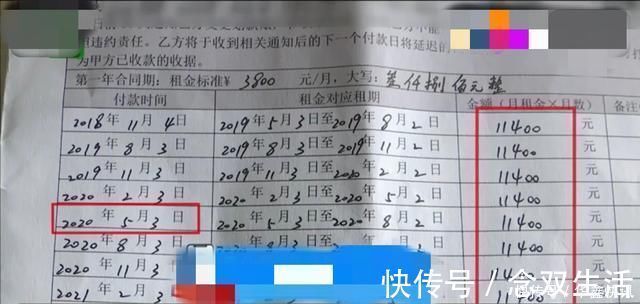 担违约责任。乙方将于收到相关通知后的下一个付款日将延迟的
为甲方已收款的收据。
第一年合同期:租金标准¥ 3800 元/月,大写:叁仟捌佰元整
付款时间 租金对应租期 金额(月租金×月数) 备注
2018年11月4日 2019年5月3日至2019年8月2日 11400 元
2019年8月3日 2019年8月3日至2019年11月2日 11400 元
2019年11月3日 2019年11月3日至2020年2月2日 11400 元
2020年2月3日 2020年2月3日至2020年5月2日 11400 元
2020年5月3日 2020年5月3日至2020年8月2日 11400 元
2020年8月3日 11400 元
2020年11月3日
2021年2月3日
快传号 / 念双生活